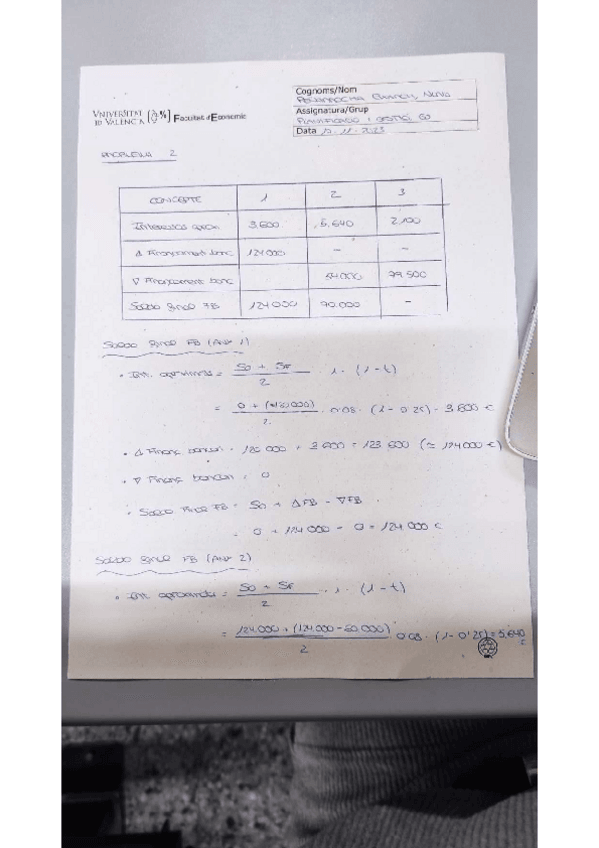 Cognoms/Nom
VNIVERSITAT ID VALENCIA Facultat d'Economia
Assignatura/Grup
Data 17-11-2023
PROBLEMA 2
CONCEPTE 1 2 3
Interessos aprox. 3.600 5.640 2.100
Δ Finançament banc 124.000 - -
∇ Finançament banc 54.000 99.500
Saldo final FB 124.000 70.000 -
Saldo final FB (Any 1)
• Int. aproximats = So + SF / 2 · i · (1-t)
= 0 + (+120.000) / 2 · 0.08 · (1-0'25) = 3.600 €
• Δ Finanç bancari = 120.000 + 3.600 = 123.600 (≈ 124.000 €)
• ∇ Finanç bancari = 0
• Saldo Final FB = So + ΔFB - ∇FB
= 0 + 124.000 - 0 = 124.000 €
Saldo final FB (Any 2)
• Int. aproximats = So + SF / 2 · i · (1-t)
= 124.000 + (124.000 - 60.000) / 2 · 0.08 · (1-0'25) = 5.640 €